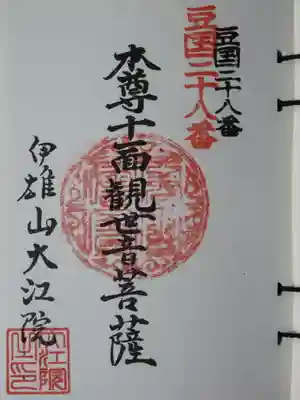 豆国二十八番
豆国二十八番
本尊十面観世音菩薩
伊雄山大江院